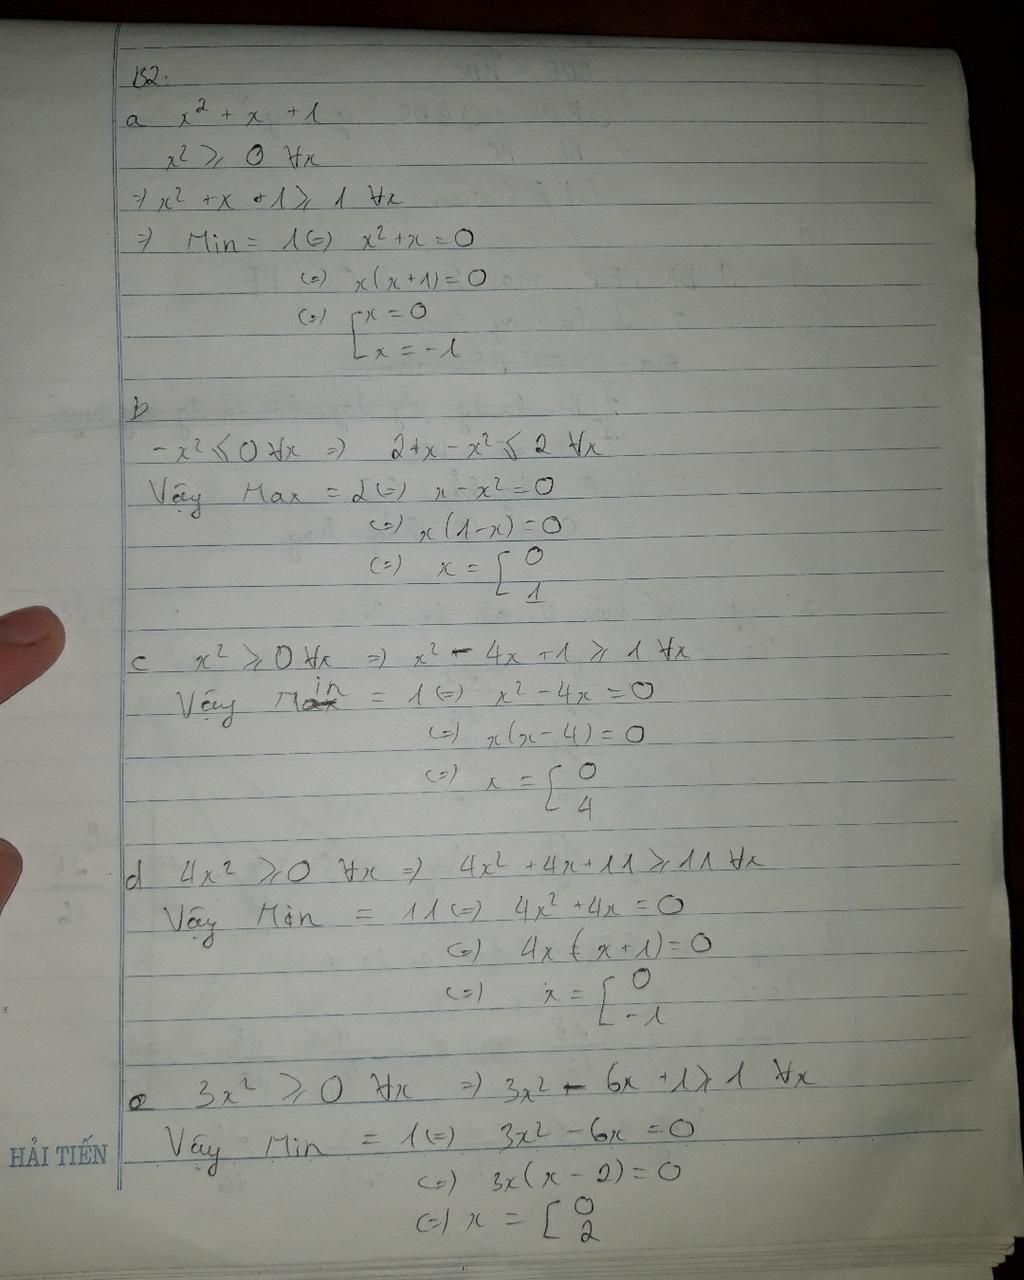 B2:
a x² + x + 1
x² ⩾ 0 ∀x
⇒ x² + x + 1 ⩾ 1 ∀x
⇒ Min = 1 (=) x² + x = 0
(=) x(x+1) = 0
(=) [ x = 0
x = -1
b
-x² ⩽ 0 ∀x ⇒ 2+x - x² ⩽ 2 ∀x
Vậy Max = 2 (=) x - x² = 0
(=) x(1-x) = 0
(=) x = [ 0
1
c x² ⩾ 0 ∀x ⇒ x² - 4x + 1 ⩾ 1 ∀x
Vậy Min = 1 (=) x² - 4x = 0
(=) x(x - 4) = 0
(=) x = [ 0
4
d 4x² ⩾ 0 ∀x ⇒ 4x² + 4x + 11 ⩾ 11 ∀x
Vậy Min = 11 (=) 4x² + 4x = 0
(=) 4x(x+1) = 0
(=) x = [ 0
-1
e 3x² ⩾ 0 ∀x ⇒ 3x² - 6x + 1 ⩾ 1 ∀x
HẢI TIẾN Vậy Min = 1 (=) 3x² - 6x = 0
(=) 3x(x - 2) = 0
(=) x = [ 0
2